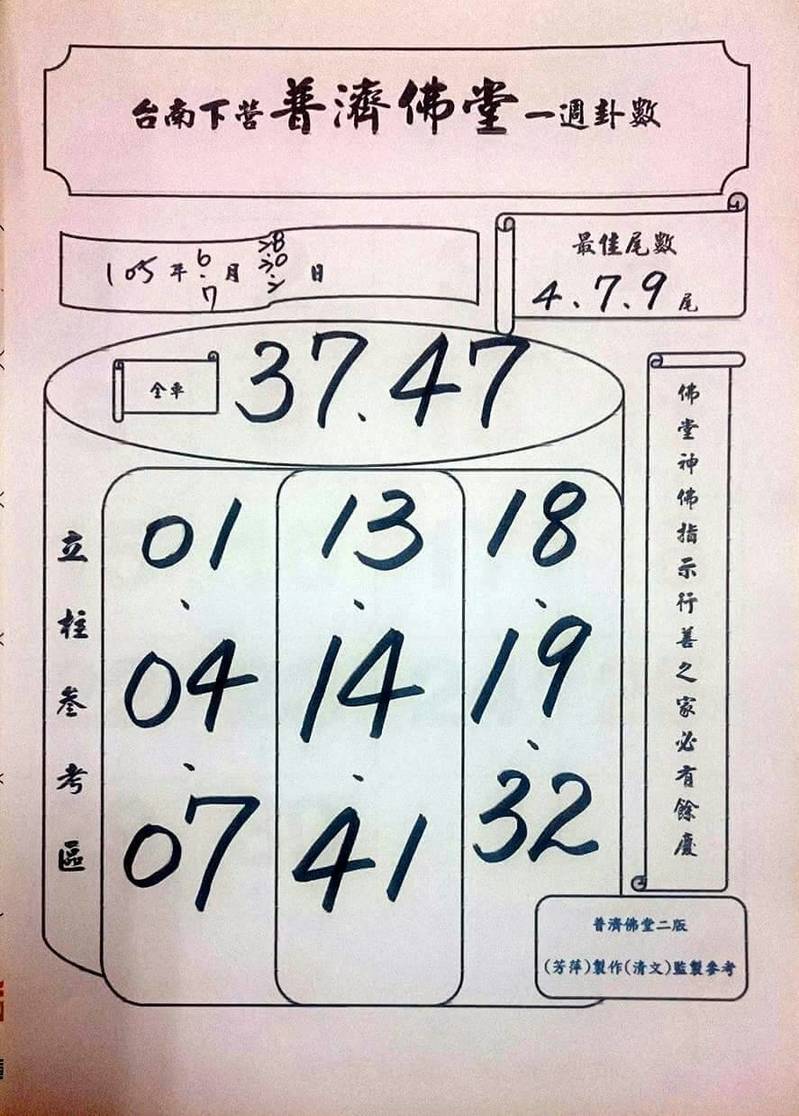 台南下營普濟佛堂一週卦數
105年6.7月28.30.2日
最佳尾數
4、7、9尾
全車
37、47
立柱參考區
01、04、07
13、14、41
18、19、32
佛堂神佛指示行善之家必有餘慶
普濟佛堂二版
(芳萍)製作(清文)監製參考